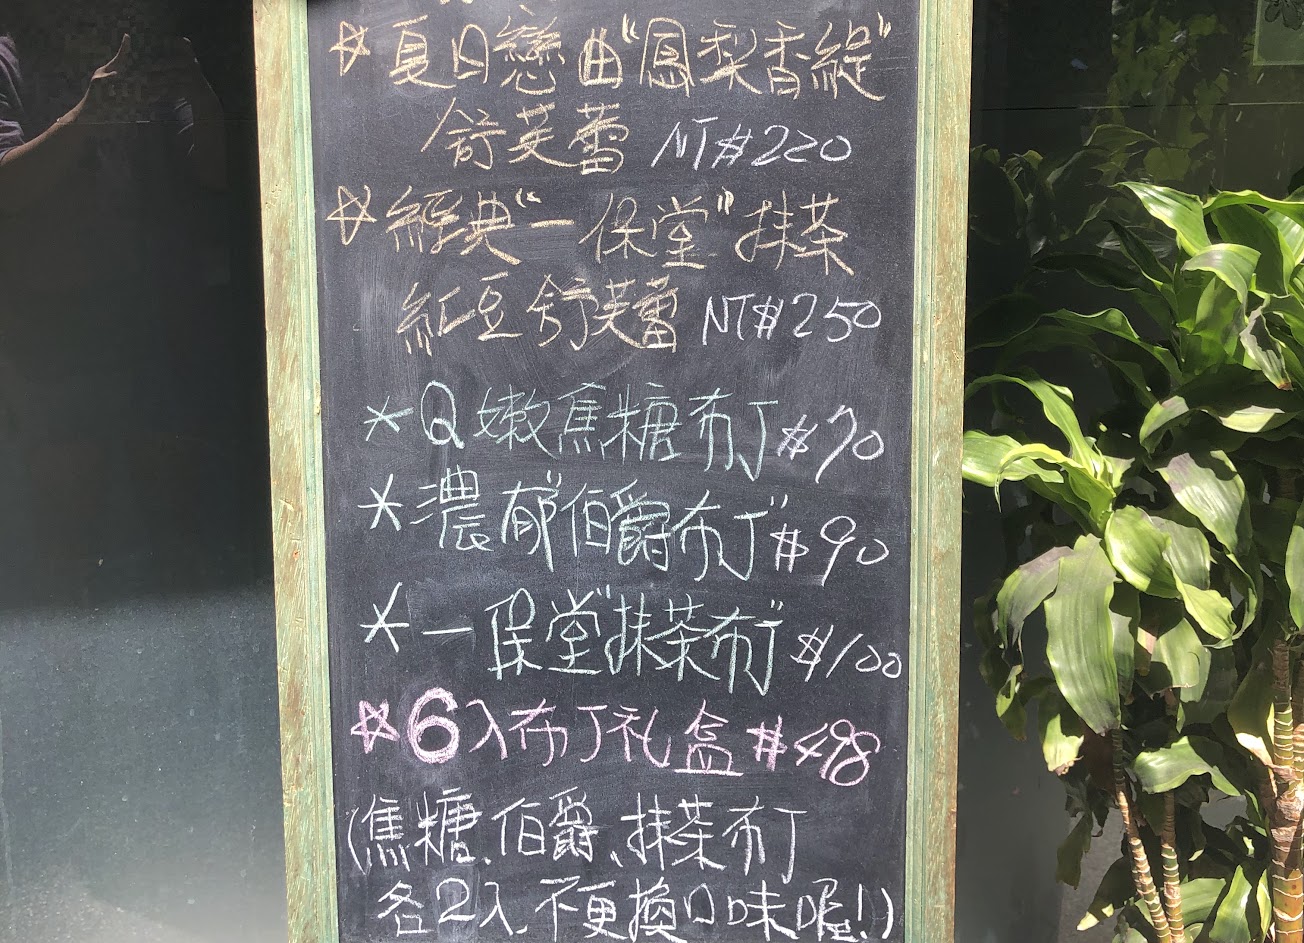 ☆夏日戀曲"鳳梨香緹"
舒芙蕾 NT$220
☆經典"一保堂"抹茶
紅豆舒芙蕾 NT$250
*Q嫩焦糖布丁$70
*濃郁"伯爵布丁"$90
*一保堂"抹茶布丁"$100
☆6入布丁礼盒$498
(焦糖、伯爵、抹茶布丁
各2入、不更換口味喔!)